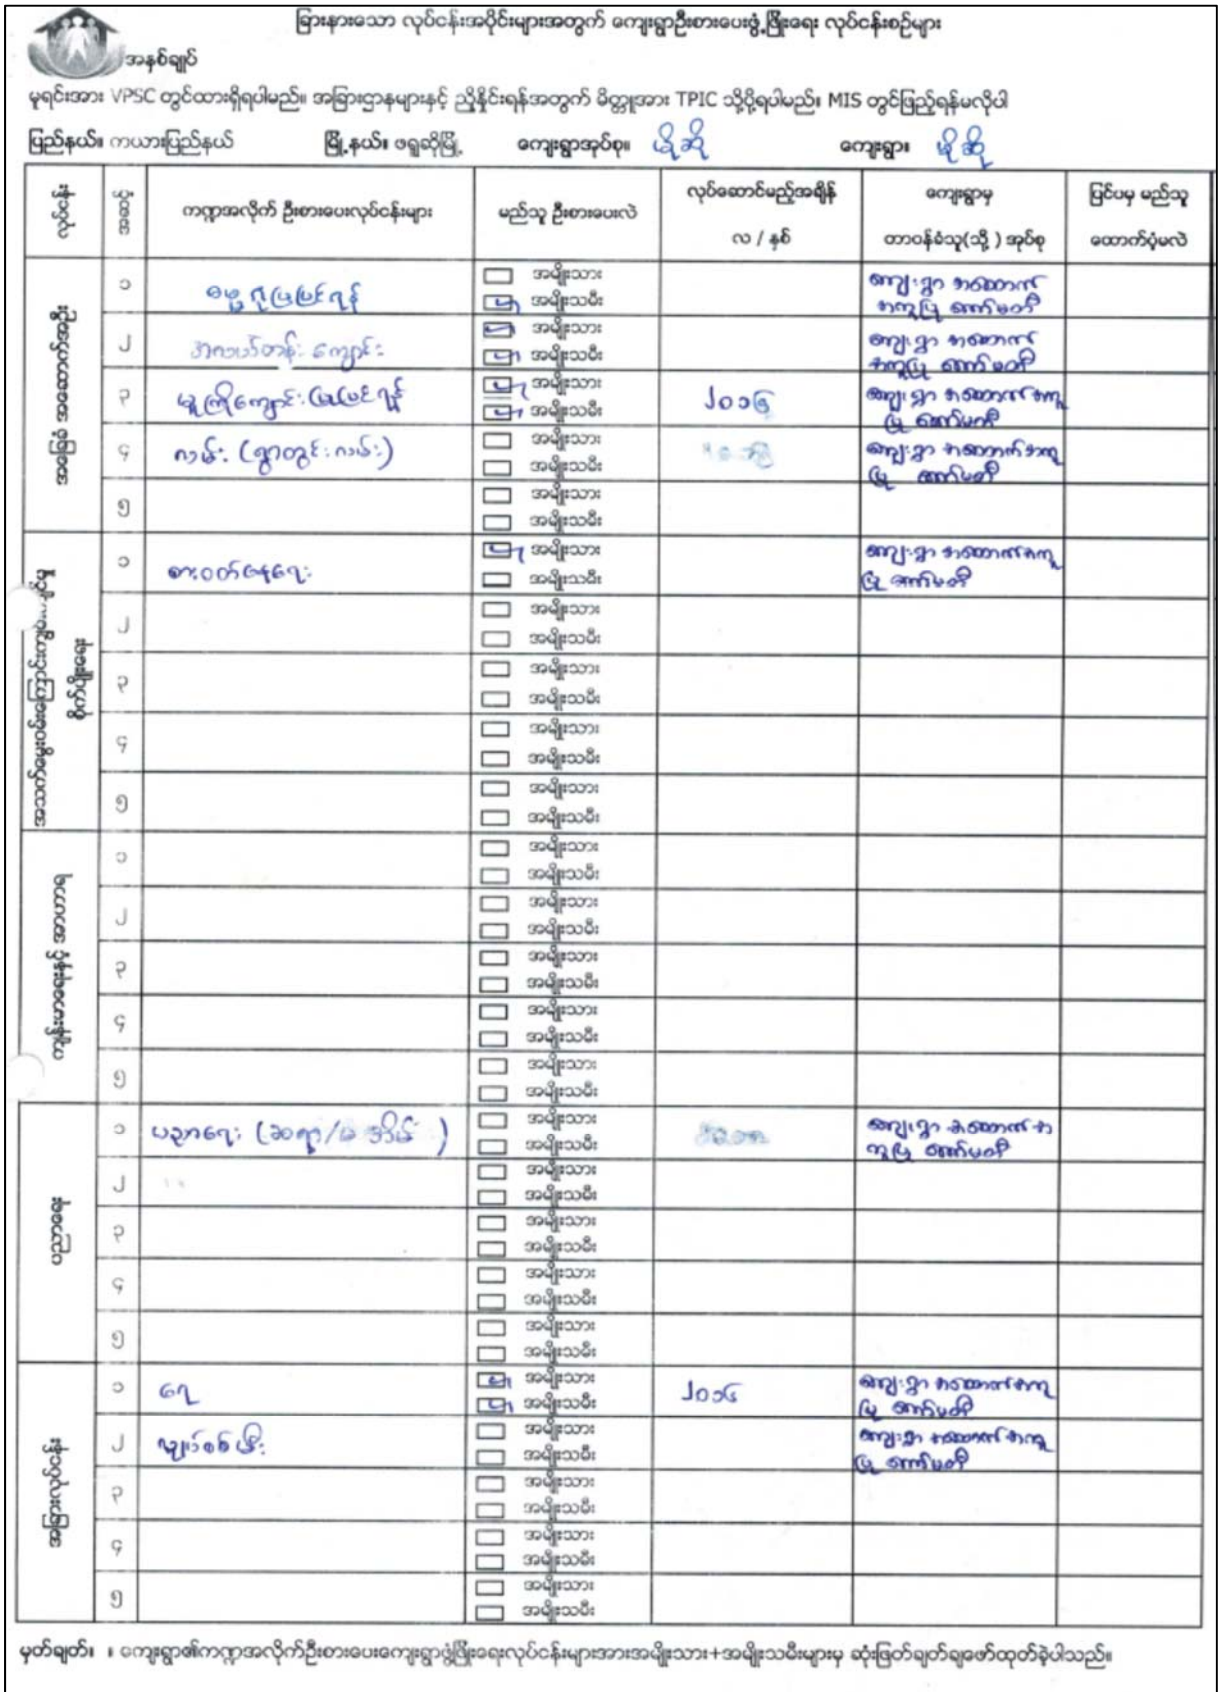 ခြားနားသော လုပ်ငန်းအပိုင်းများအတွက် ကျေးရွာဦးစားပေးဖွံ့ဖြိုးရေး လုပ်ငန်းစဉ်များ
အနှစ်ချုပ်
မူရင်းအား VPSC တွင်ထားရှိရပါမည်။ အခြားဌာနများနှင့် ညှိနှိုင်းရန်အတွက် မိတ္တူအား TPIC သို့ပို့ရပါမည်။ MIS တွင်ဖြည့်ရန်မလိုပါ
ပြည်နယ်။ ကယားပြည်နယ် မြို့နယ်။ ဖရူဆိုမြို့ ကျေးရွာအုပ်စု။ မိုဆို ကျေးရွာ။ မိုဆို
လုပ်ငန်း အဆင့် ကဏ္ဍအလိုက် ဦးစားပေးလုပ်ငန်းများ မည်သူ ဦးစားပေးလဲ လုပ်ဆောင်မည့်အချိန် ကျေးရွာမှ ပြင်ပမှ မည်သူ
လ / နှစ် တာဝန်ခံသူ(သို့) အုပ်စု ထောက်ပံ့မလဲ
အခြေခံ အဆောက်အဦး
၁ ပြုပြင်ရန် အမျိုးသား ကျေးရွာ အထောက်
အမျိုးသမီး အကူပြု ကော်မတီ
၂ အလယ်တန်း ကျောင်း အမျိုးသား ကျေးရွာ အထောက်
အမျိုးသမီး အကူပြု ကော်မတီ
၃ မူကြိုကျောင်း ပြုပြင်ရန် အမျိုးသား ၂၀၁၆ ကျေးရွာ အထောက် အကူ
အမျိုးသမီး ပြု ကော်မတီ
၄ လမ်း (ရွာတွင်းလမ်း) အမျိုးသား ကျေးရွာ အထောက် အကူ
အမျိုးသမီး ပြု ကော်မတီ
၅ အမျိုးသား
အမျိုးသမီး
၁ စားဝတ်နေရေး အမျိုးသား ကျေးရွာ အထောက်အကူ
အမျိုးသမီး ပြု ကော်မတီ
၂ အမျိုးသား
အမျိုးသမီး
၃ အမျိုးသား
အမျိုးသမီး
၄ အမျိုးသား
အမျိုးသမီး
၅ အမျိုးသား
အမျိုးသမီး
ကျန်းမာရေးနှင့် အာဟာရ
၁ အမျိုးသား
အမျိုးသမီး
၂ အမျိုးသား
အမျိုးသမီး
၃ အမျိုးသား
အမျိုးသမီး
၄ အမျိုးသား
အမျိုးသမီး
၅ အမျိုးသား
အမျိုးသမီး
ပညာရေး
၁ ပညာရေး (ဆရာ/မ အိမ်) အမျိုးသား ကျေးရွာ အထောက် အ
အမျိုးသမီး ကူပြု ကော်မတီ
၂ အမျိုးသား
အမျိုးသမီး
၃ အမျိုးသား
အမျိုးသမီး
၄ အမျိုးသား
အမျိုးသမီး
၅ အမျိုးသား
အမျိုးသမီး
အခြားလုပ်ငန်း
၁ ရေ အမျိုးသား ၂၀၁၆ ကျေးရွာ အထောက်အကူ
အမျိုးသမီး ပြု ကော်မတီ
၂ လျှပ်စစ်မီး အမျိုးသား ကျေးရွာ အထောက် အကူ
အမျိုးသမီး ပြု ကော်မတီ
၃ အမျိုးသား
အမျိုးသမီး
၄ အမျိုးသား
အမျိုးသမီး
၅ အမျိုးသား
အမျိုးသမီး
မှတ်ချတ်။ ။ ကျေးရွာ၏ကဏ္ဍအလိုက်ဦးစားပေးကျေးရွာဖွံ့ဖြိုးရေးလုပ်ငန်းများအားအမျိုးသား+အမျိုးသမီးများမှ ဆုံးဖြတ်ချတ်ချဖော်ထုတ်ခဲ့ပါသည်။